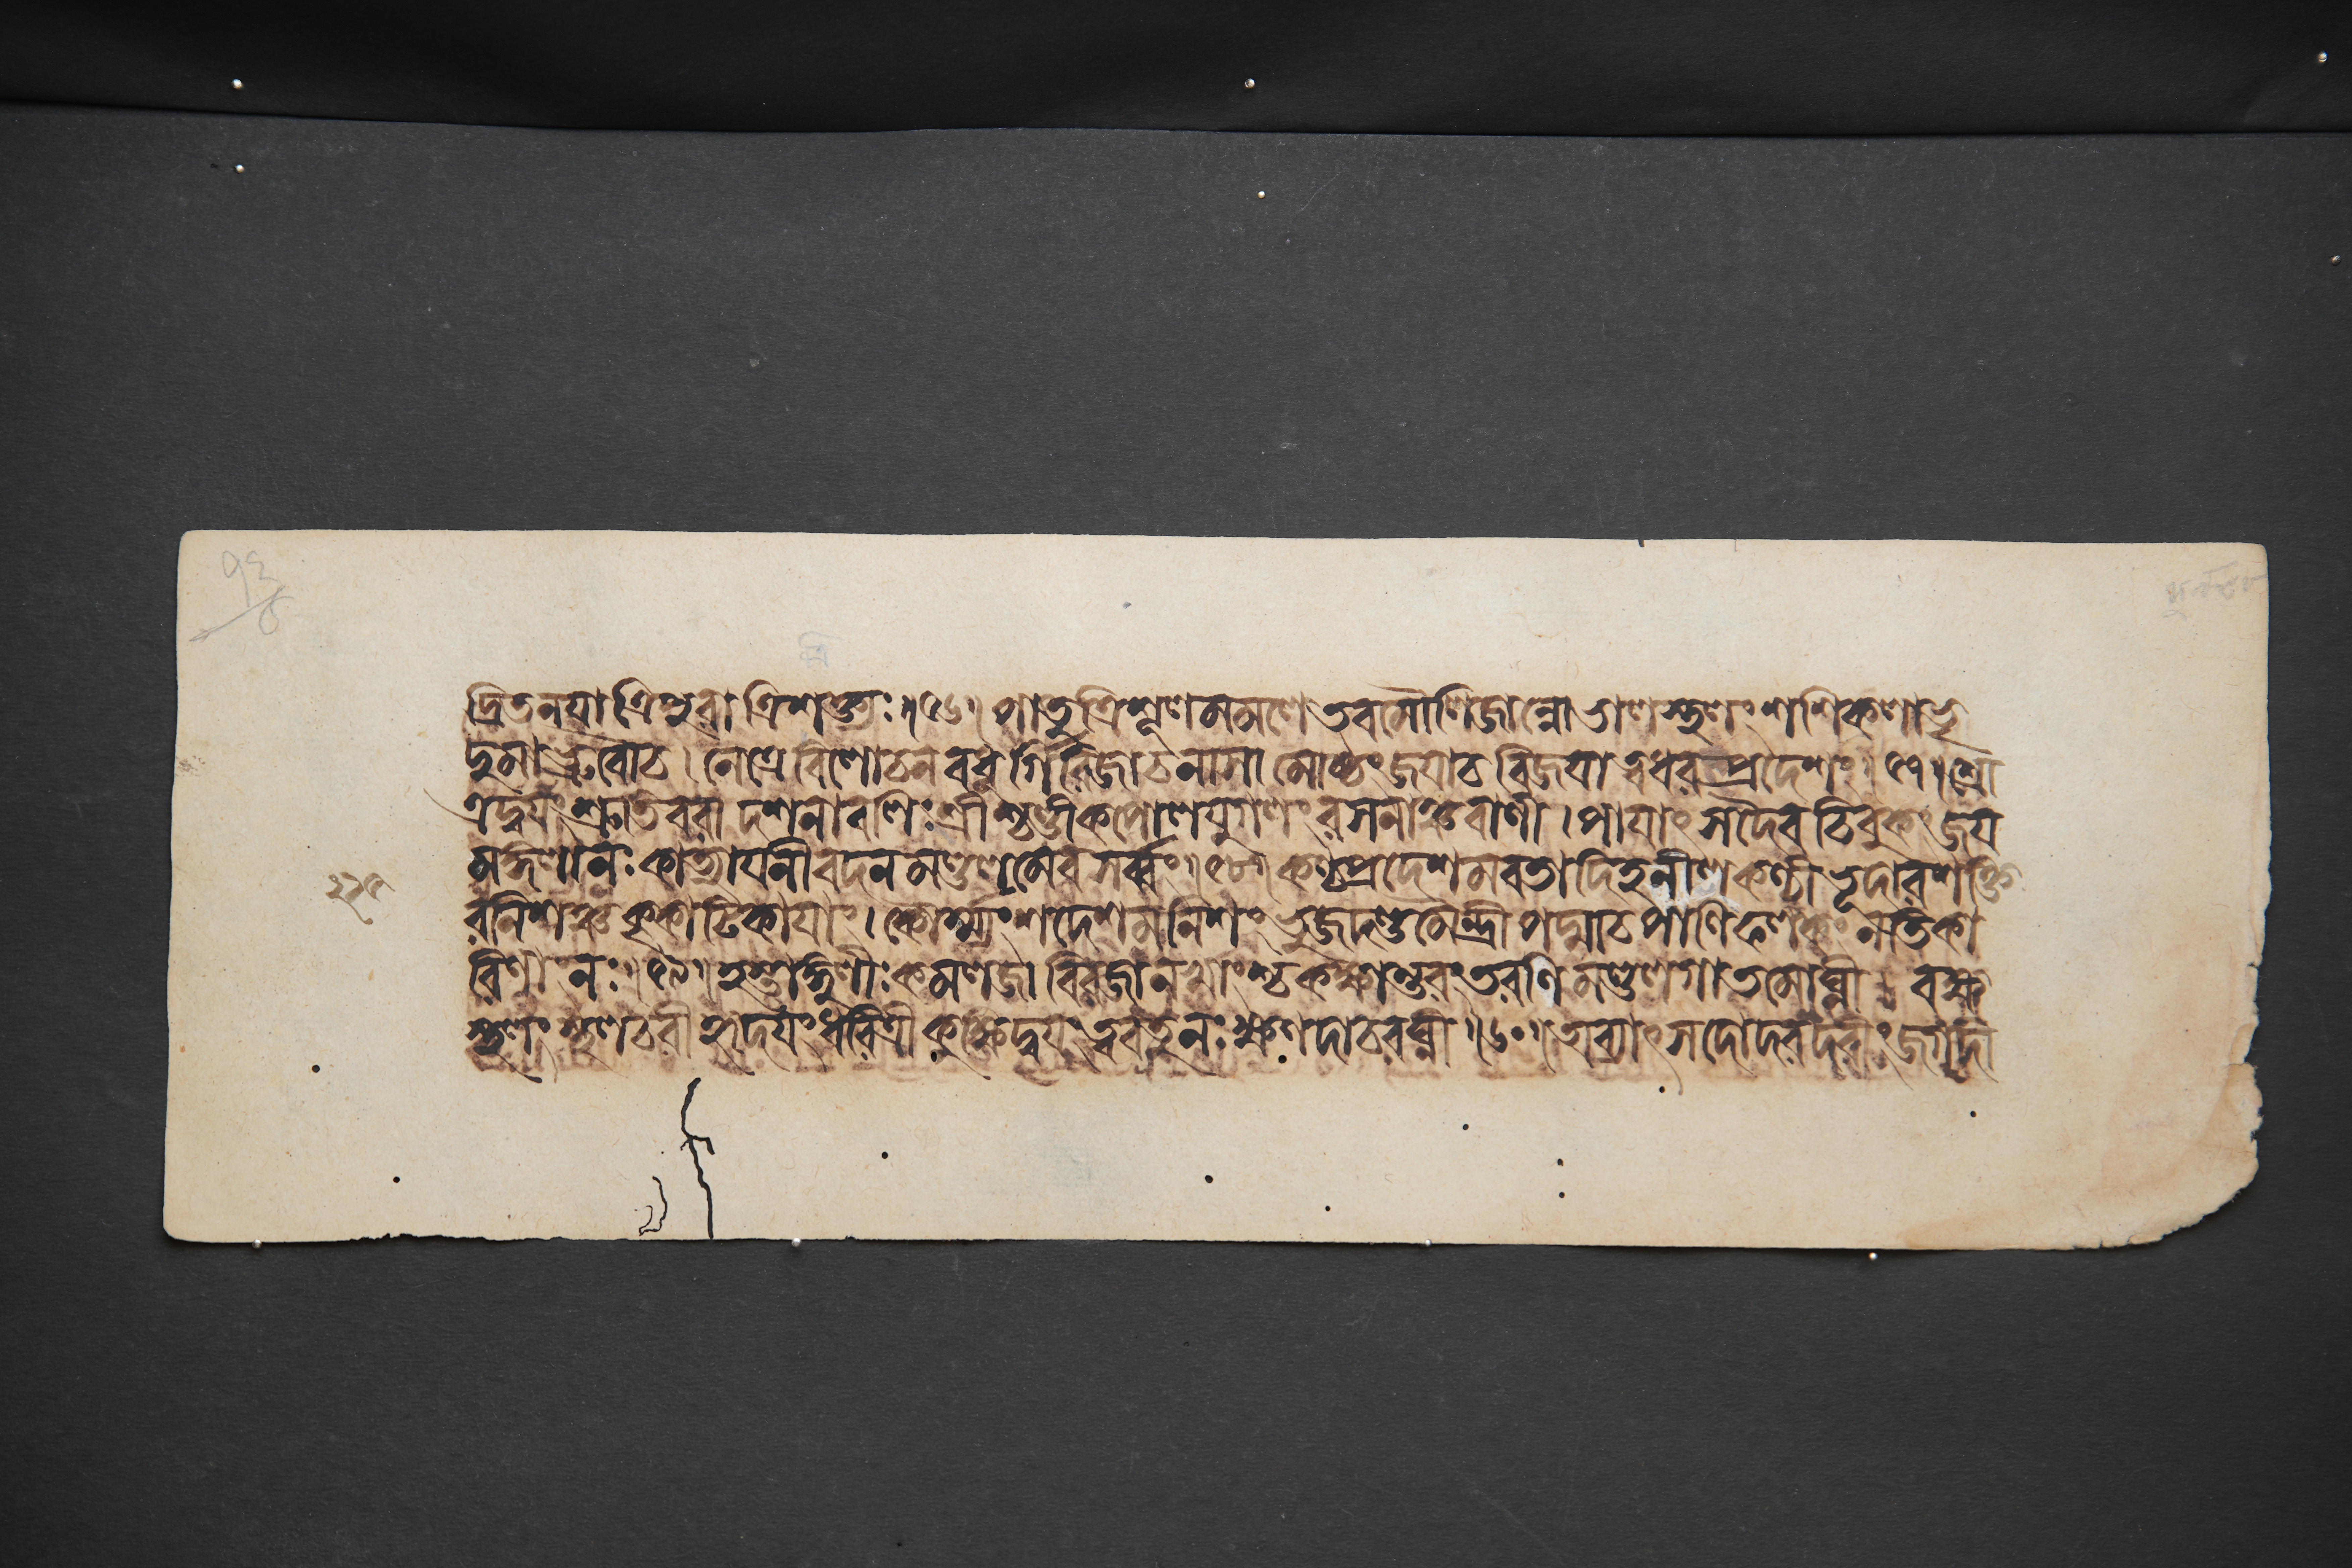 দ্রিতনয়া ত্রিপুরা ত্রিশক্ত্যঃ॥৫৬॥ পাতু ত্রিশূলমমলে তব মৌলিজান্নো ভালস্থলং শশিকলাভৃ
দুমা ভ্রুবৌ চ। নেত্রে ত্রিলোচনবধূর্গিরিজা চ নাসামোষ্ঠং জয়া চ বিজয়া ত্বধরপ্রদেশং॥৫৭॥ শ্রো
ত্রদ্বয়ং শ্রুতিরবা দশনাবলিং শ্রীশ্চণ্ডী কপোলযুগলং রসনাঞ্চ বাণী। পায়াৎ সদৈব চিবুকং জয়
মঙ্গলা নঃ কাত্যায়নী বদনমণ্ডলমেব সর্ব্বং॥৫৮॥ কণ্ঠপ্রদেশমবতাদিহ নীলকণ্ঠী ভূদারশক্তি
রনিশঞ্চ কৃকাটিকায়াং। কৌর্ম্ম্যংশদেশমনিশং ভুজদণ্ডমৈন্দ্রী পদ্মা চ পাণিফলকং নতিকা
রিণাং নঃ॥৫৯॥ হস্তাঙ্গুলীঃ কমলজা বিরজা নখাংশ্চ কক্ষান্তরং তরণিমণ্ডলগা তমোঘ্নী। বক্ষঃ
স্থলং স্থলচরী হৃদয়ং ধরিত্রী কুক্ষিদ্বয়ং ত্ববতু নঃ ক্ষণদাচরঘ্নী॥৬০॥ অব্যাৎ সদোদরদরীং জগদী